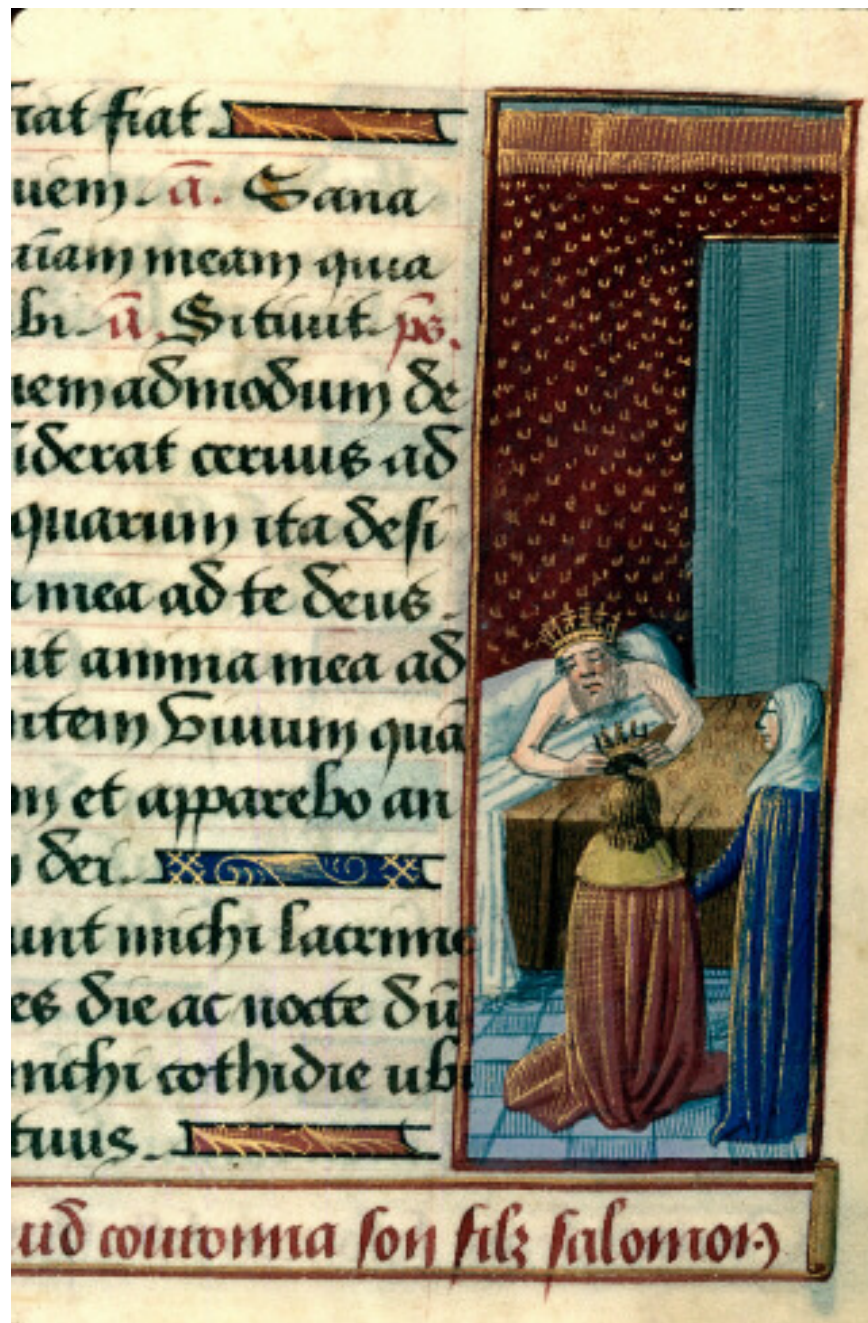 tat fiat
uem. a̅. Sana
ai̅am meam quia
bi a̅. Sitiuit p̅s.
uem admodum de
siderat ceruus ad
quarum ita desi
a mea ad te deus.
ut anima mea ad
ntem viuum qua̅
m et apparebo an
m dei.
unt michi lacrime
es die ac nocte du̅
michi cothidie ubi
tuus.
ud couronna son filz salomon